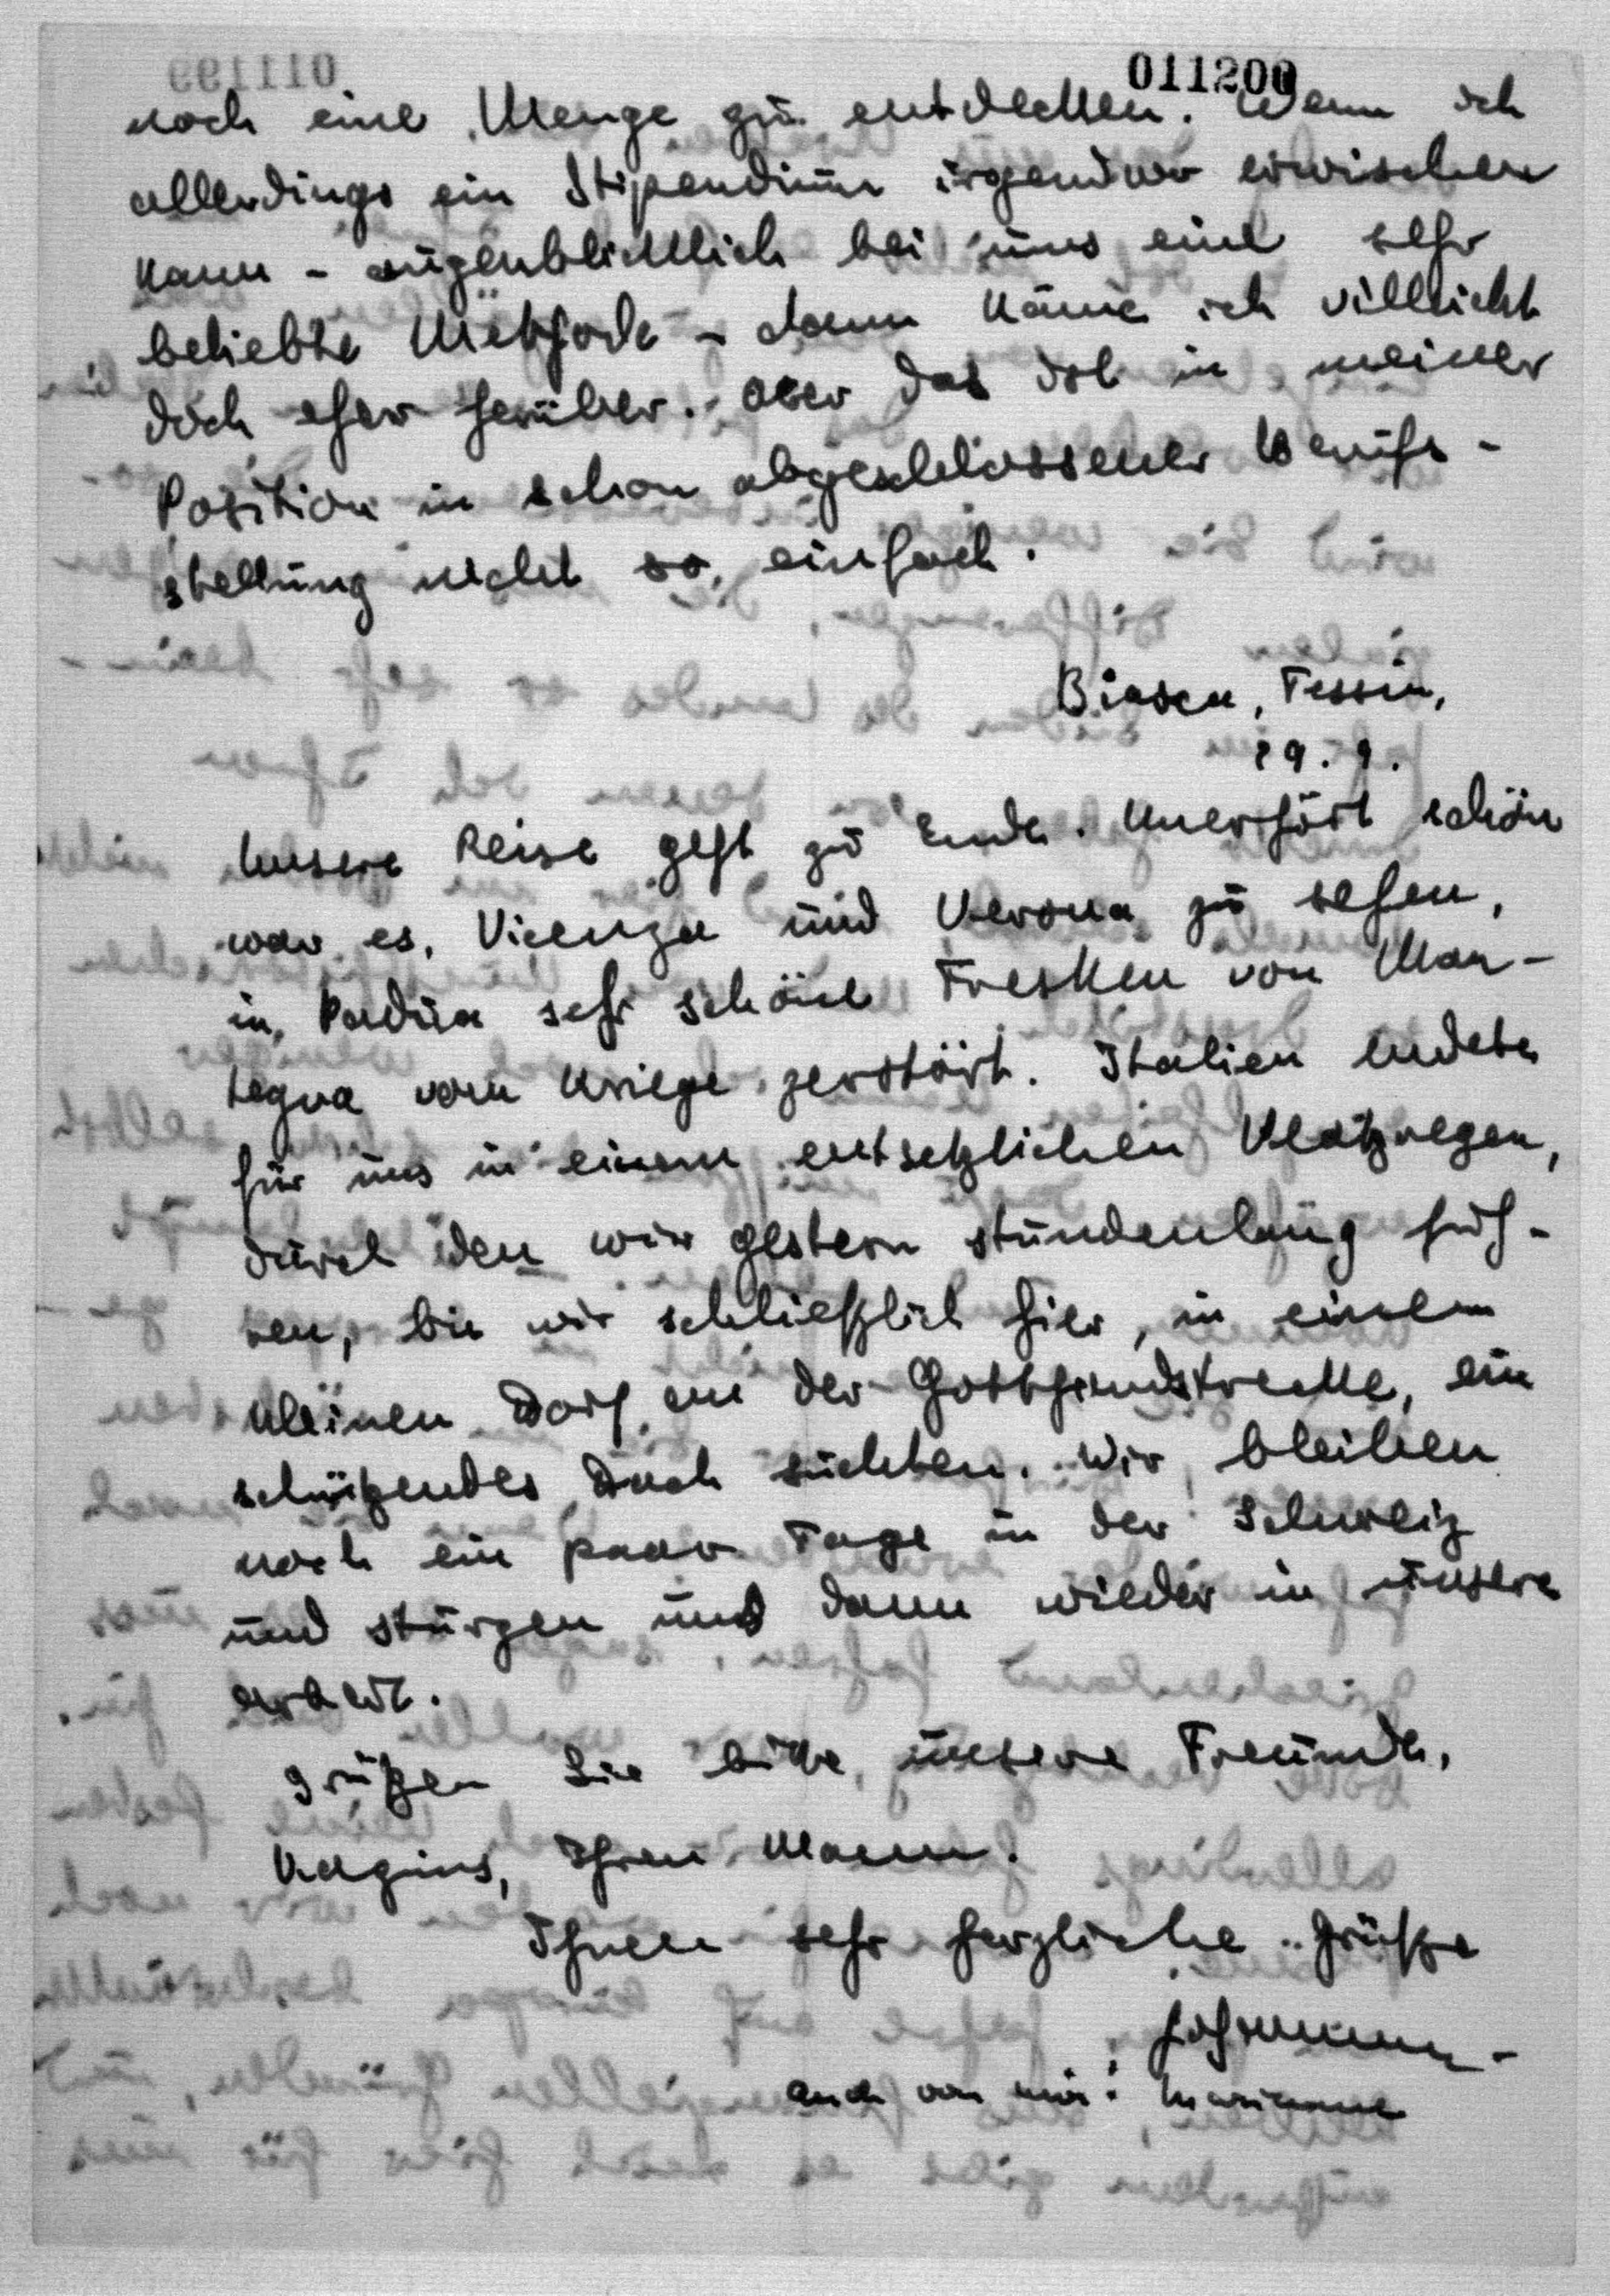 011200
noch eine Menge zu entdecken. Wenn ich
allerdings ein Stipendium irgendwo erwischen
kann - augenblicklich bei uns eine sehr
beliebte Methode - dann käme ich villeicht
doch eher herüber. Aber das ist in meiner
Position in schon abgeschlossener Berufs-
stellung nicht so einfach.
Biasca, Tessin,
29. 9.
Unsere Reise geht zu Ende. Unerhört schön
war es, Vicenza und Verona zu sehen,
in Padua sehr schöne Fresken von Man-
tegna vom Kriege zerstört. Italien endete
für uns in einem entsetzlichen Platzregen,
durch den wir gestern stundenlang fuh-
ren, bis wir schließlich hier, in einem
kleinen Dorf an der Gotthardstrecke, ein
schützendes Dach suchten. Wir bleiben
noch ein paar Tage in der Schweiz
und stürzen uns dann wieder in unsere
Arbeit.
Grüßen Sie bitte unsere Freunde,
Ihren Mann.
Ihnen sehr herzliche Grüße
auch von mir: Marianne